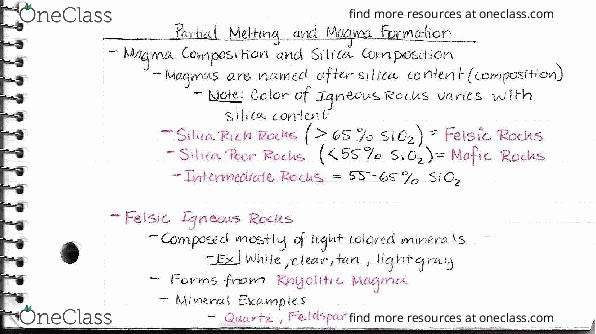 OneClass
find more resources at oneclass.com
Partial Melting and Magma Formation
- Magma Composition and Silica Composition
- Magmas are named after silica content (composition)
- Note: Color of Igneous Rocks varies with
silica content
- Silica Rich Rocks (>65% SiO₂) = Felsic Rocks
- Silica Poor Rocks (<55% SiO₂) = Mafic Rocks
- Intermediate Rocks = 55-65% SiO₂
- Felsic Igneous Rocks
- Composed mostly of light colored minerals
- Ex| White, clear, tan, light gray
- Forms from Rhyolitic Magma
- Mineral Examples
- Quartz, Feldspar
OneClass
find more resources at oneclass.com